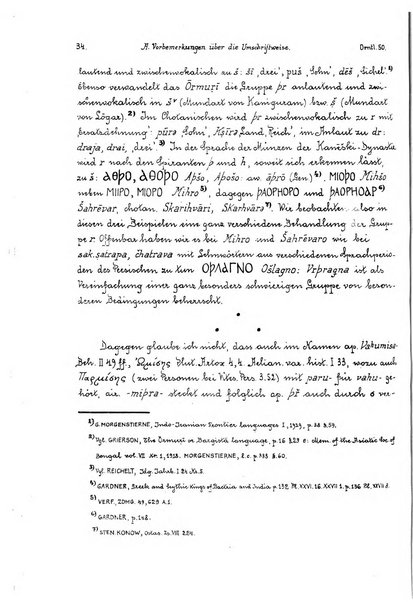 34. A. Vorbemerkungen über die Umschriftweise. Orntl. 50.
lautend und zwischenvokalisch zu š: šī ‚drei', puš ‚Sohn', dēš ‚Sichel'.¹⁾
Ebenso verwandelt das Ōrmuṛī die Gruppe þr anlautend und zwi-
schenvokalisch in šʳ (Mundart von Kaniguram) bzw. š (Mundart
von Lōgar).²⁾ Im Ossischen wird þr zwischenvokalisch zu r mit
Ersatzdehnung: pūrə ‚Sohn', Land, ‚Reich', im Anlaut zu dr:
draja, drai, ‚drei'.³⁾ In der Sprache der Münzen der Kanēški-Dynastie
wird r nach den Spiranten þ und h, soweit sich erkennen lässt,
zu š: ΑΘÞΟ, ΑΘΟÞΟ Aþšo, Aþošo: aw. āþrō (Gen)⁴⁾. ΜΙΟÞΟ Mihšo
neben ΜΙΙΡΟ, ΜΙΟΡΟ Mihro⁵⁾, dagegen ÞΑΟΡΗΟΡΟ und ÞΑΟΡΗΟΑΡ⁶⁾
Šahrēvar, chotan. Skarihvāri, Skarhvāra⁷⁾. Wir beobachten also in
diesen drei Beispielen eine ganz verschiedene Behandlung der Grup-
pe r. Offenbar haben wir es bei Mihro und Šahrēvaro wie bei
sak. satrapa, chatrava mit Lehnwörtern aus verschiedenen Sprachperio-
den des Persischen zu tun. ΟΡΛΑΓΝΟ Ošlagno: Vrþragna ist als
Vereinfachung einer ganz besonders schwierigen Gruppe von beson-
deren Bedingungen beherrscht.
Dagegen glaube ich nicht, dass auch im Namen ap. Vahumisa
Beh. II 49 ff., Ὠμίσης Plut. Artox 4,4. Aelian. var. hist. I 33, wozu auch
Παρμίσης (zwei Personen bei Vitos. Pers. 3. 52) mit paru- für vahu- ge-
hört, air. -miþra- steckt und folglich ap. þr auch durch s ver-
¹⁾ G. MORGENSTIERNE, Indo-Iranian Frontier Languages I, 1929, p. 28 § 59.
²⁾ Vgl. GRIERSON, The Ormuṛi or Bargistā language, p. 16 § 29 = Mem. of the Asiatic Soc. of
Bengal vol. VII Nr. 1, 1918. MORGENSTIERNE, l. c. p. 333 § 60.
³⁾ Vgl. REICHELT, Idg. Jahrb. I 24 No. 5.
⁴⁾ GARDNER, Greek and Scythic Kings of Bactria and India p. 132 Pl. XXVI. 16. XXVII 1, p. 136 Pl. XXVII 8.
⁵⁾ VERF., ZDMG. 49, 629 A 1.
⁶⁾ GARDNER, p. 148.
⁷⁾ STEN KONOW, Ostas. Zs. VIII 224.